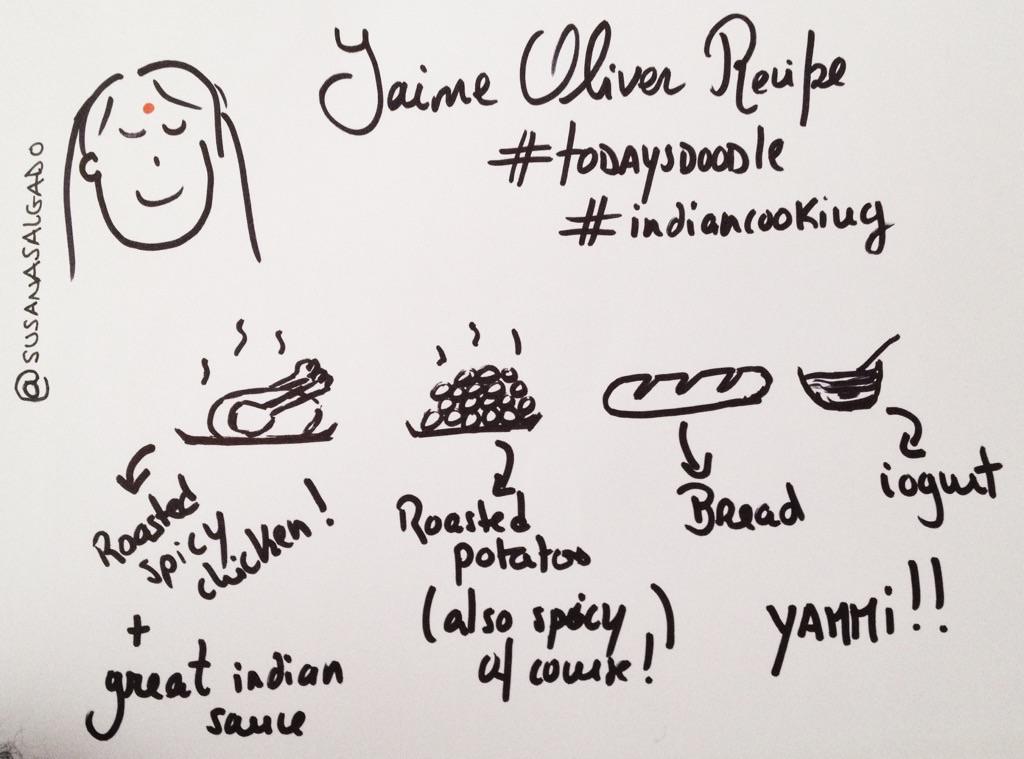 Jaime Oliver Recipe
#TODAYSDOODLE
#indiancooking
@SUSANASALGADO
Roasted
spicy
chicken!
+
great indian
sauce
Roasted
potatoes
(also spicy
of course!)
Bread
iogurt
YAMMi!!